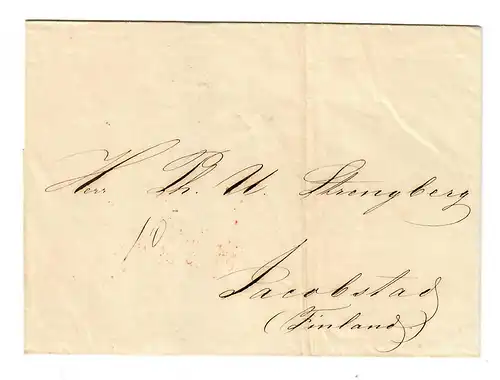 Herr Ph. U. Strengberg
10
Jacobstad
(Finland)